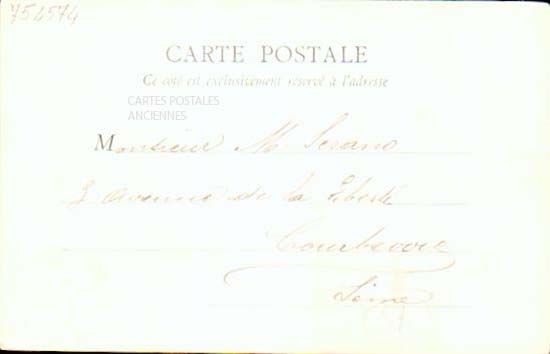 754574
CARTE POSTALE
Ce côté est exclusivement réservé à l'adresse
CARTES POSTALES
ANCIENNES
Monsieur M Serano
3 avenue de la Liberté
Courbevoie
Seine